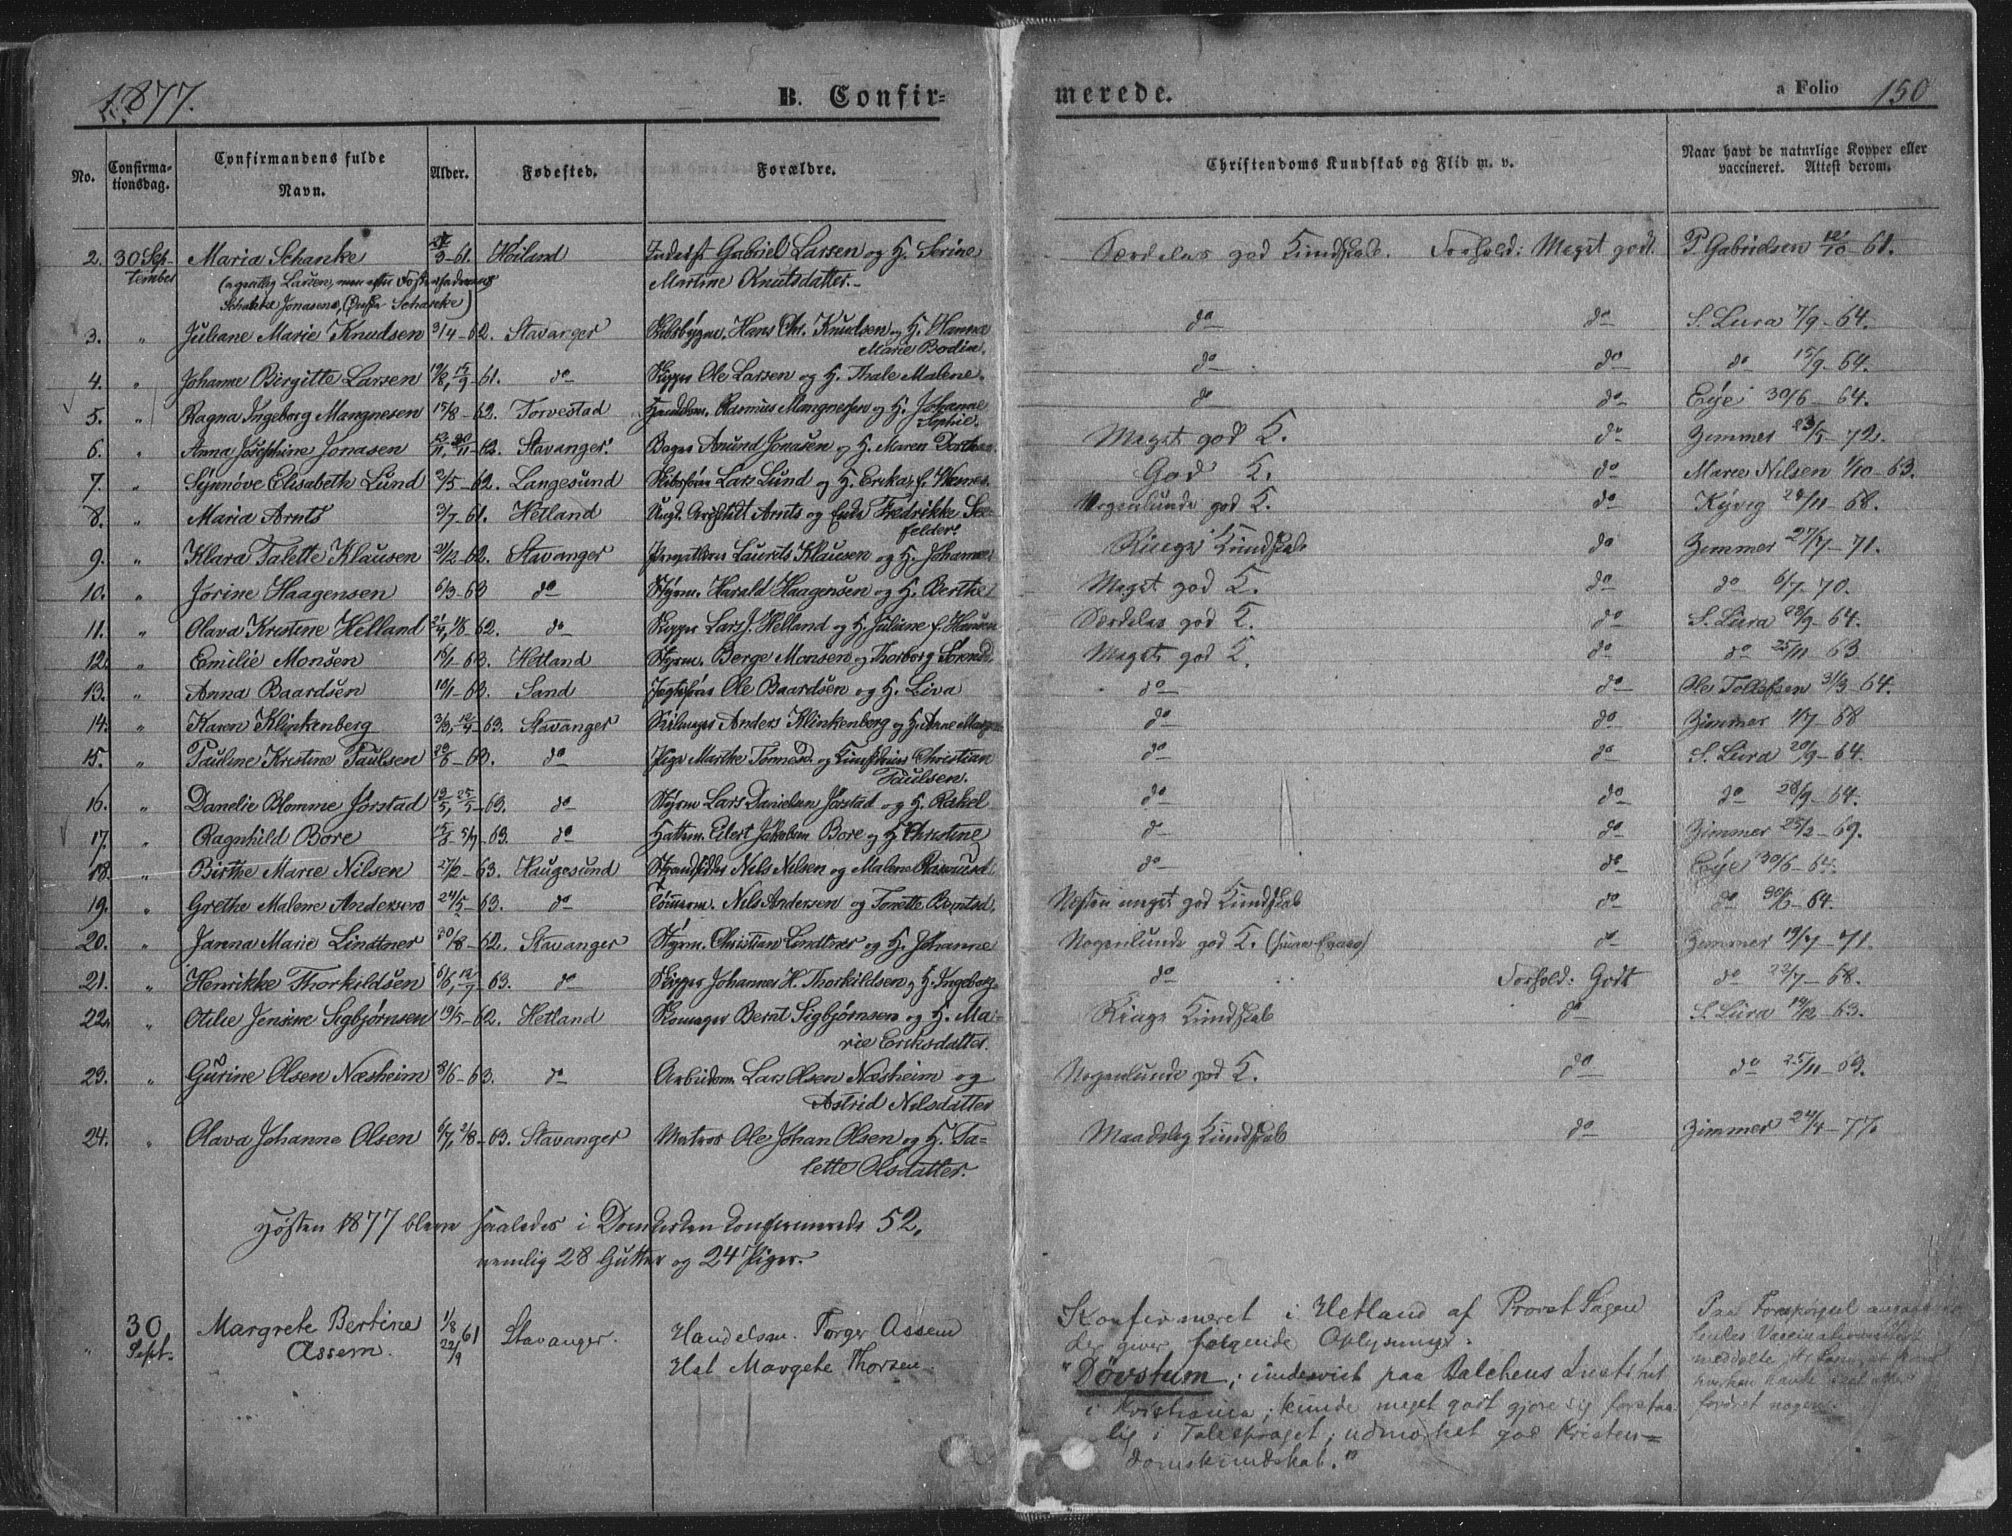 1877. B. Confir=
merede. a Folio 150
No. Confirma-tionsdag. Confirmandens fulde Navn. Alder. Fødested. Forældre. Christendoms Kundskab og Flid m. v. Naar havt de naturlige Kopper eller vaccineret. Attest derom.
2. 30 Sep- Maria Schanke 3-61. Høiland Gabriel Larsen og H. Serine Særdeles god Kundskab. Forhold: Meget godt. P. Gabrielsen 12/10-61.
tember (egentlig Larsen, men efter Fosterfaderens Martine Knutsdatter.
Jonasen, Schancke)
3. " Juliane Marie Knudsen 3/4-62. Stavanger Hans Chr. Knudsen og H. Hanna do do S. Lura 7/9-64.
Marie Bodin.
4. " Johanne Birgitte Larsen 19/8, 15/9-61. do Skipper Ole Larsen og H. Thale Malene. do do do 15/9. 64.
5. " Ragna Ingeborg Mangnesen 15/8-62. Torvestad Handelsm. Rasmus Mangnesen og H. Johanne do do Eye 30/6-64.
Sophie.
6. " Anna Josephine Jonasen 62. Stavanger. Bager Anund Jonasen og H. Maren Meget god K. do Zimmer 23/5-72.
7. " Synnøve Elisabeth Lund 2/5-62. Langesund Lars Lund og H. Erika, f. God K. do Marie Nilsen 1/10-63.
8. " Maria Arnts 3/7-61. Hetland Arnts og Fredrikke See- Nogenlunde god K. do Kyvig 28/11-68.
felder.
9. " Klara Talette Klausen 21/12-62. Stavanger Laurits Klausen og H. Johanne Ringe Kundskab do Zimmer 27/7-71.
10. " Jorine Haagensen 6/3-63 do Styrm. Harald Haagensen og H. Berthe Meget god K. do do 6/7-70.
11. " Olava Kristine Helland 21/7, 1/8-62. do Skipper Lars J. Helland og H. Juliane f. Hansen Særdeles god K. do S. Lura 29/9-64.
12. " Emilie Monsen 16/1-63. Hetland Styrm. Berge Monsen og Thorborg Meget god K. do do 25/11-63
13. " Anna Baardsen 10/1-63. Sand Jegtefører Ole Baardsen og H. Liva do do Ole Tollefsen 31/3-64.
14. " Karen Klinkenberg 3/3, 12/4-63. Stavanger Anders Klinkenberg og H. Anne do do Zimmer 1/7-68
15. " Pauline Kristine Paulsen 63. do Pige Marthe Tønnesd. og Christian do do S. Lura 20/9-64.
Paulsen.
16. " Danelie Blomme Jørstad 12/5, 25/5-63. do Styrm Lars Danielsen Jørstad og H. Rakel do do do 28/9-64.
17. " Ragnhild Bore 63. do Hattem. Eilert Jakobsen Bore og H Christine do do Zimmer 25/2-69.
18. " Birthe Marie Nilsen 27/2-63. Haugesund Strandsidder Nils Nilsen og Malene Rasmusd. do do Eye 30/6-64.
19. " Grethe Malene Andersen 24/5-63. do Tømmerm. Nils Andersen og Tonette Berntsd. Næsten meget god Kundskab do do 30/6-64.
20. " Janna Marie Lindtner 30/8-62. Stavanger Styrm. Christian Lindtner og H. Johanne Nogenlunde god K. do Zimmer 19/7-71.
21. " Henrikke Thorkildsen 6/6, 12/7-63. do Skipper Johannes H. Thorkildsen og H. Ingeborg do Forhold: Godt do 22/7-68.
22. " Otilie Jensine Sigbjørnsen 19/5-62. Hetland Skomager Bernt Sigbjørnsen og H. Ma- Ringe Kundskab do S. Lura 14/12-63.
rie Eriksdatter.
23. " Gurine Olsen Næsheim 8/6-63. do Arbeidsm. Lars Olsen Næsheim og Nogenlunde god K. do do 25/11-63.
Astrid Nilsdatter
24. " Olava Johanne Olsen 6/7, 2/8-63. Stavanger Matros Ole Johan Olsen og H. Ta- Maadelig Kundskab do Zimmer 24/4-77.
lette Olsdatter.
Høsten 1877 bleve saaledes i Domkirken confirmerede 52,
nemlig 28 Gutter og 24 Piger.
" 30 Sept. Margrete Bertine Assem. 1/8 22/9 61 Stavanger. Handelsm. Torger Assem
Hst Margete Thorsen.
Konfirmeret i Hetland af Provst Lagen
der giver følgende Oplysninger:
"Døvstum; undervist paa Balchens Institut
i Kristiania; kunde meget godt gjøre sig forstaa-
lig i Talesproget; udmærket god Kristen=
domskundskab."
Paa Forespørgsel
Vaccinationsattest
meddelte
havde
fordret nogen.